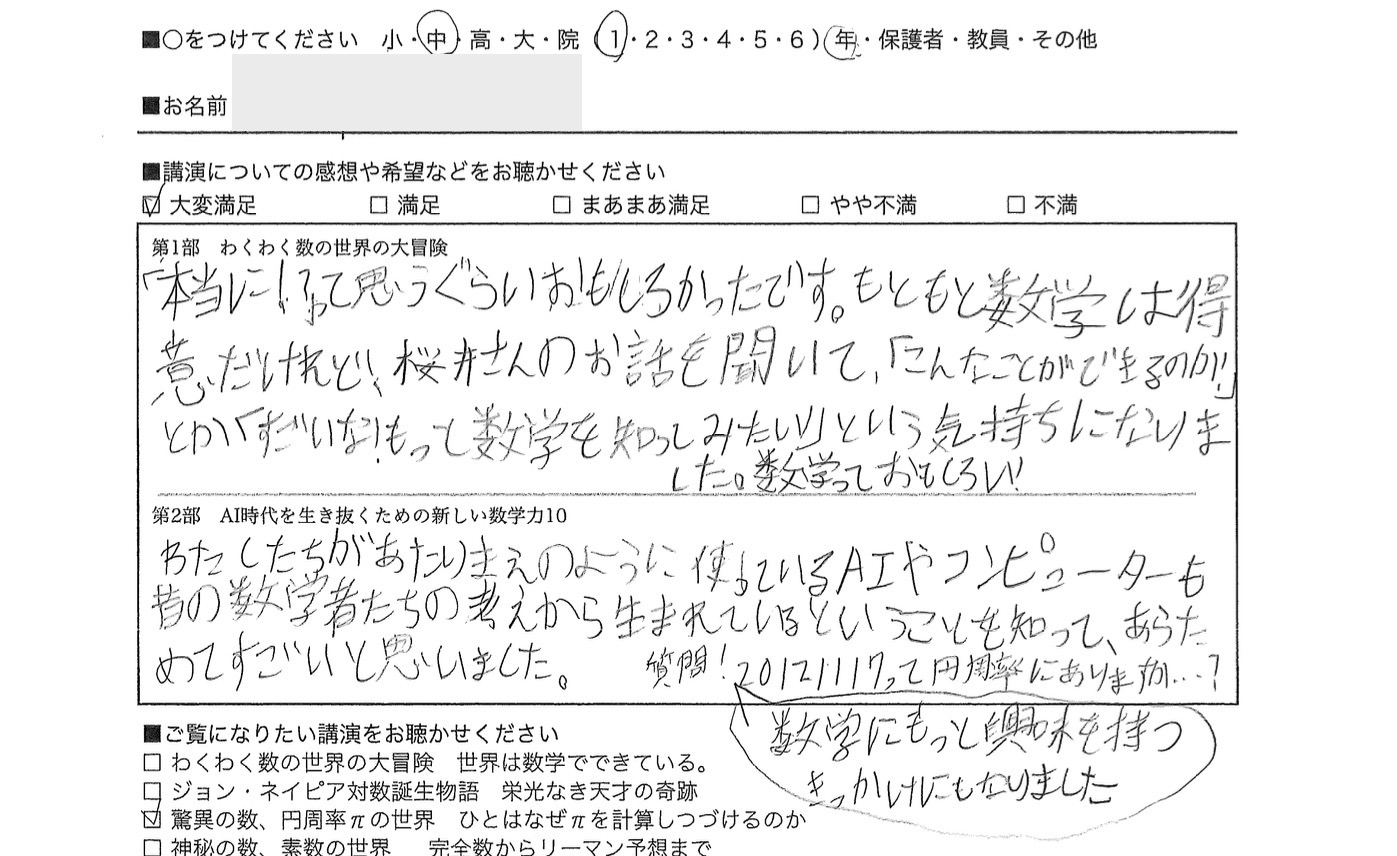 ■○をつけてください 小・中・高・大・院 (1・2・3・4・5・6)年・保護者・教員・その他
■お名前
■講演についての感想や希望などをお聴かせください
☑ 大変満足 □ 満足 □ まあまあ満足 □ やや不満 □ 不満
第1部 わくわく数の世界の大冒険
「本当に!?って思うぐらいおもしろかったです。もともと数学は得
意だけれど、桜井さんのお話を聞いて、「こんなことができるのか!」
とか「すごいな!もっと数学を知ってみたい!」という気持ちになりま
した。数学っておもしろい!
第2部 AI時代を生き抜くための新しい数学力10
わたしたちがあたりまえのように使っているAIやコンピューターも
昔の数学者たちの考えから生まれているということを知って、あらた
めてすごいと思いました。 質問!20121117って円周率にありますか…?
数学にもっと興味を持つ
きっかけにもなりました
■ご覧になりたい講演をお聴かせください
□ わくわく数の世界の大冒険 世界は数学でできている。
□ ジョン・ネイピア対数誕生物語 栄光なき天才の奇跡
☑ 驚異の数、円周率πの世界 ひとはなぜπを計算しつづけるのか
□ 神秘の数、素数の世界 完全数からリーマン予想まで